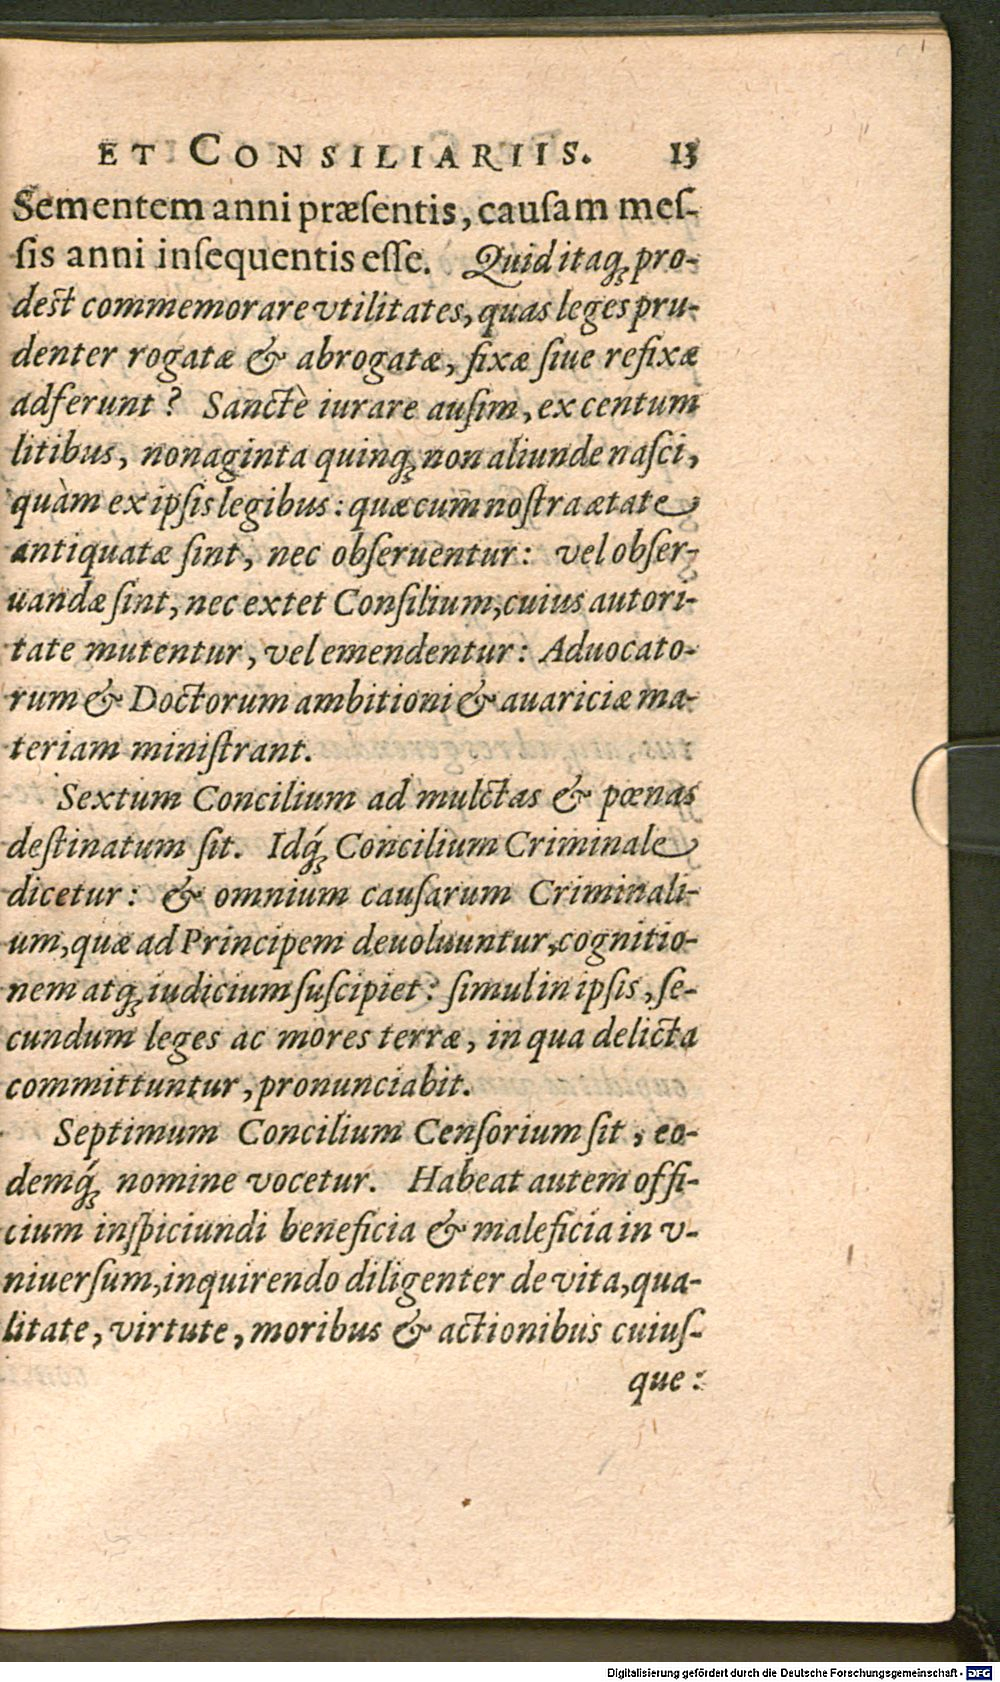 ET CONSILIARIIS. 13
Sementem anni præſentis, cauſam meſ-
ſis anni inſequentis eſſe. Quid itaq; pro-
deſt commemorare vtilitates, quas leges pru-
denter rogatæ & abrogatæ, fixæ ſiue refixæ
adferunt? Sanctè iurare auſim, ex centum
litibus, nonaginta quinq; non aliunde naſci,
quàm ex ipſis legibus: quæ cum noſtra ætate
antiquatæ ſint, nec obſeruentur: vel obſer-
uandæ ſint, nec extet Conſilium, cuius autori-
tate mutentur, vel emendentur: Aduocato-
rum & Doctorum ambitioni & auariciæ ma-
teriam miniſtrant.
Sextum Concilium ad mulctas & pœnas
deſtinatum ſit. Idq́; Concilium Criminale
dicetur: & omnium cauſarum Criminali-
um, quæ ad Principem deuoluuntur, cognitio-
nem atq; iudicium ſuſcipiet: ſimul in ipſis, ſe-
cundum leges ac mores terræ, in qua delicta
committuntur, pronunciabit.
Septimum Concilium Cenſorium ſit, eo-
demq́; nomine vocetur. Habeat autem offi-
cium inſpiciundi beneficia & maleficia in v-
niuerſum, inquirendo diligenter de vita, qua-
litate, virtute, moribus & actionibus cuiuſ-
que:
Digitalisierung gefördert durch die Deutsche Forschungsgemeinschaft - DFG